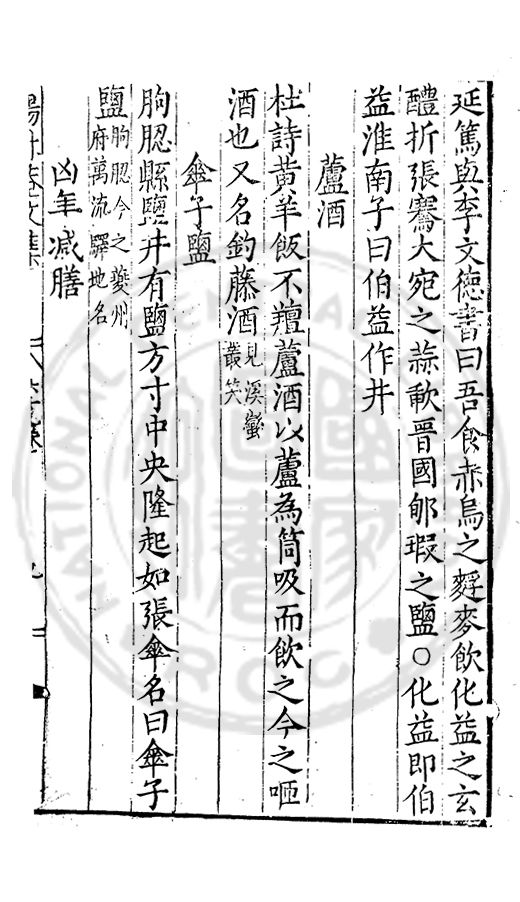 延篤與李文德書曰吾食赤烏之麰麥飲化益之玄
醴折張騫大宛之蒜歃晉國郇瑕之鹽○化益即伯
益淮南子曰伯益作井
蘆酒
杜詩黃羊飯不羶蘆酒以蘆為筒吸而飲之今之咂
酒也又名釣藤酒見溪蠻
叢笑
傘子鹽
朐䏰縣鹽井有鹽方寸中央隆起如張傘名曰傘子
鹽朐䏰今之夔州
府萬流驛地名
凶年減膳